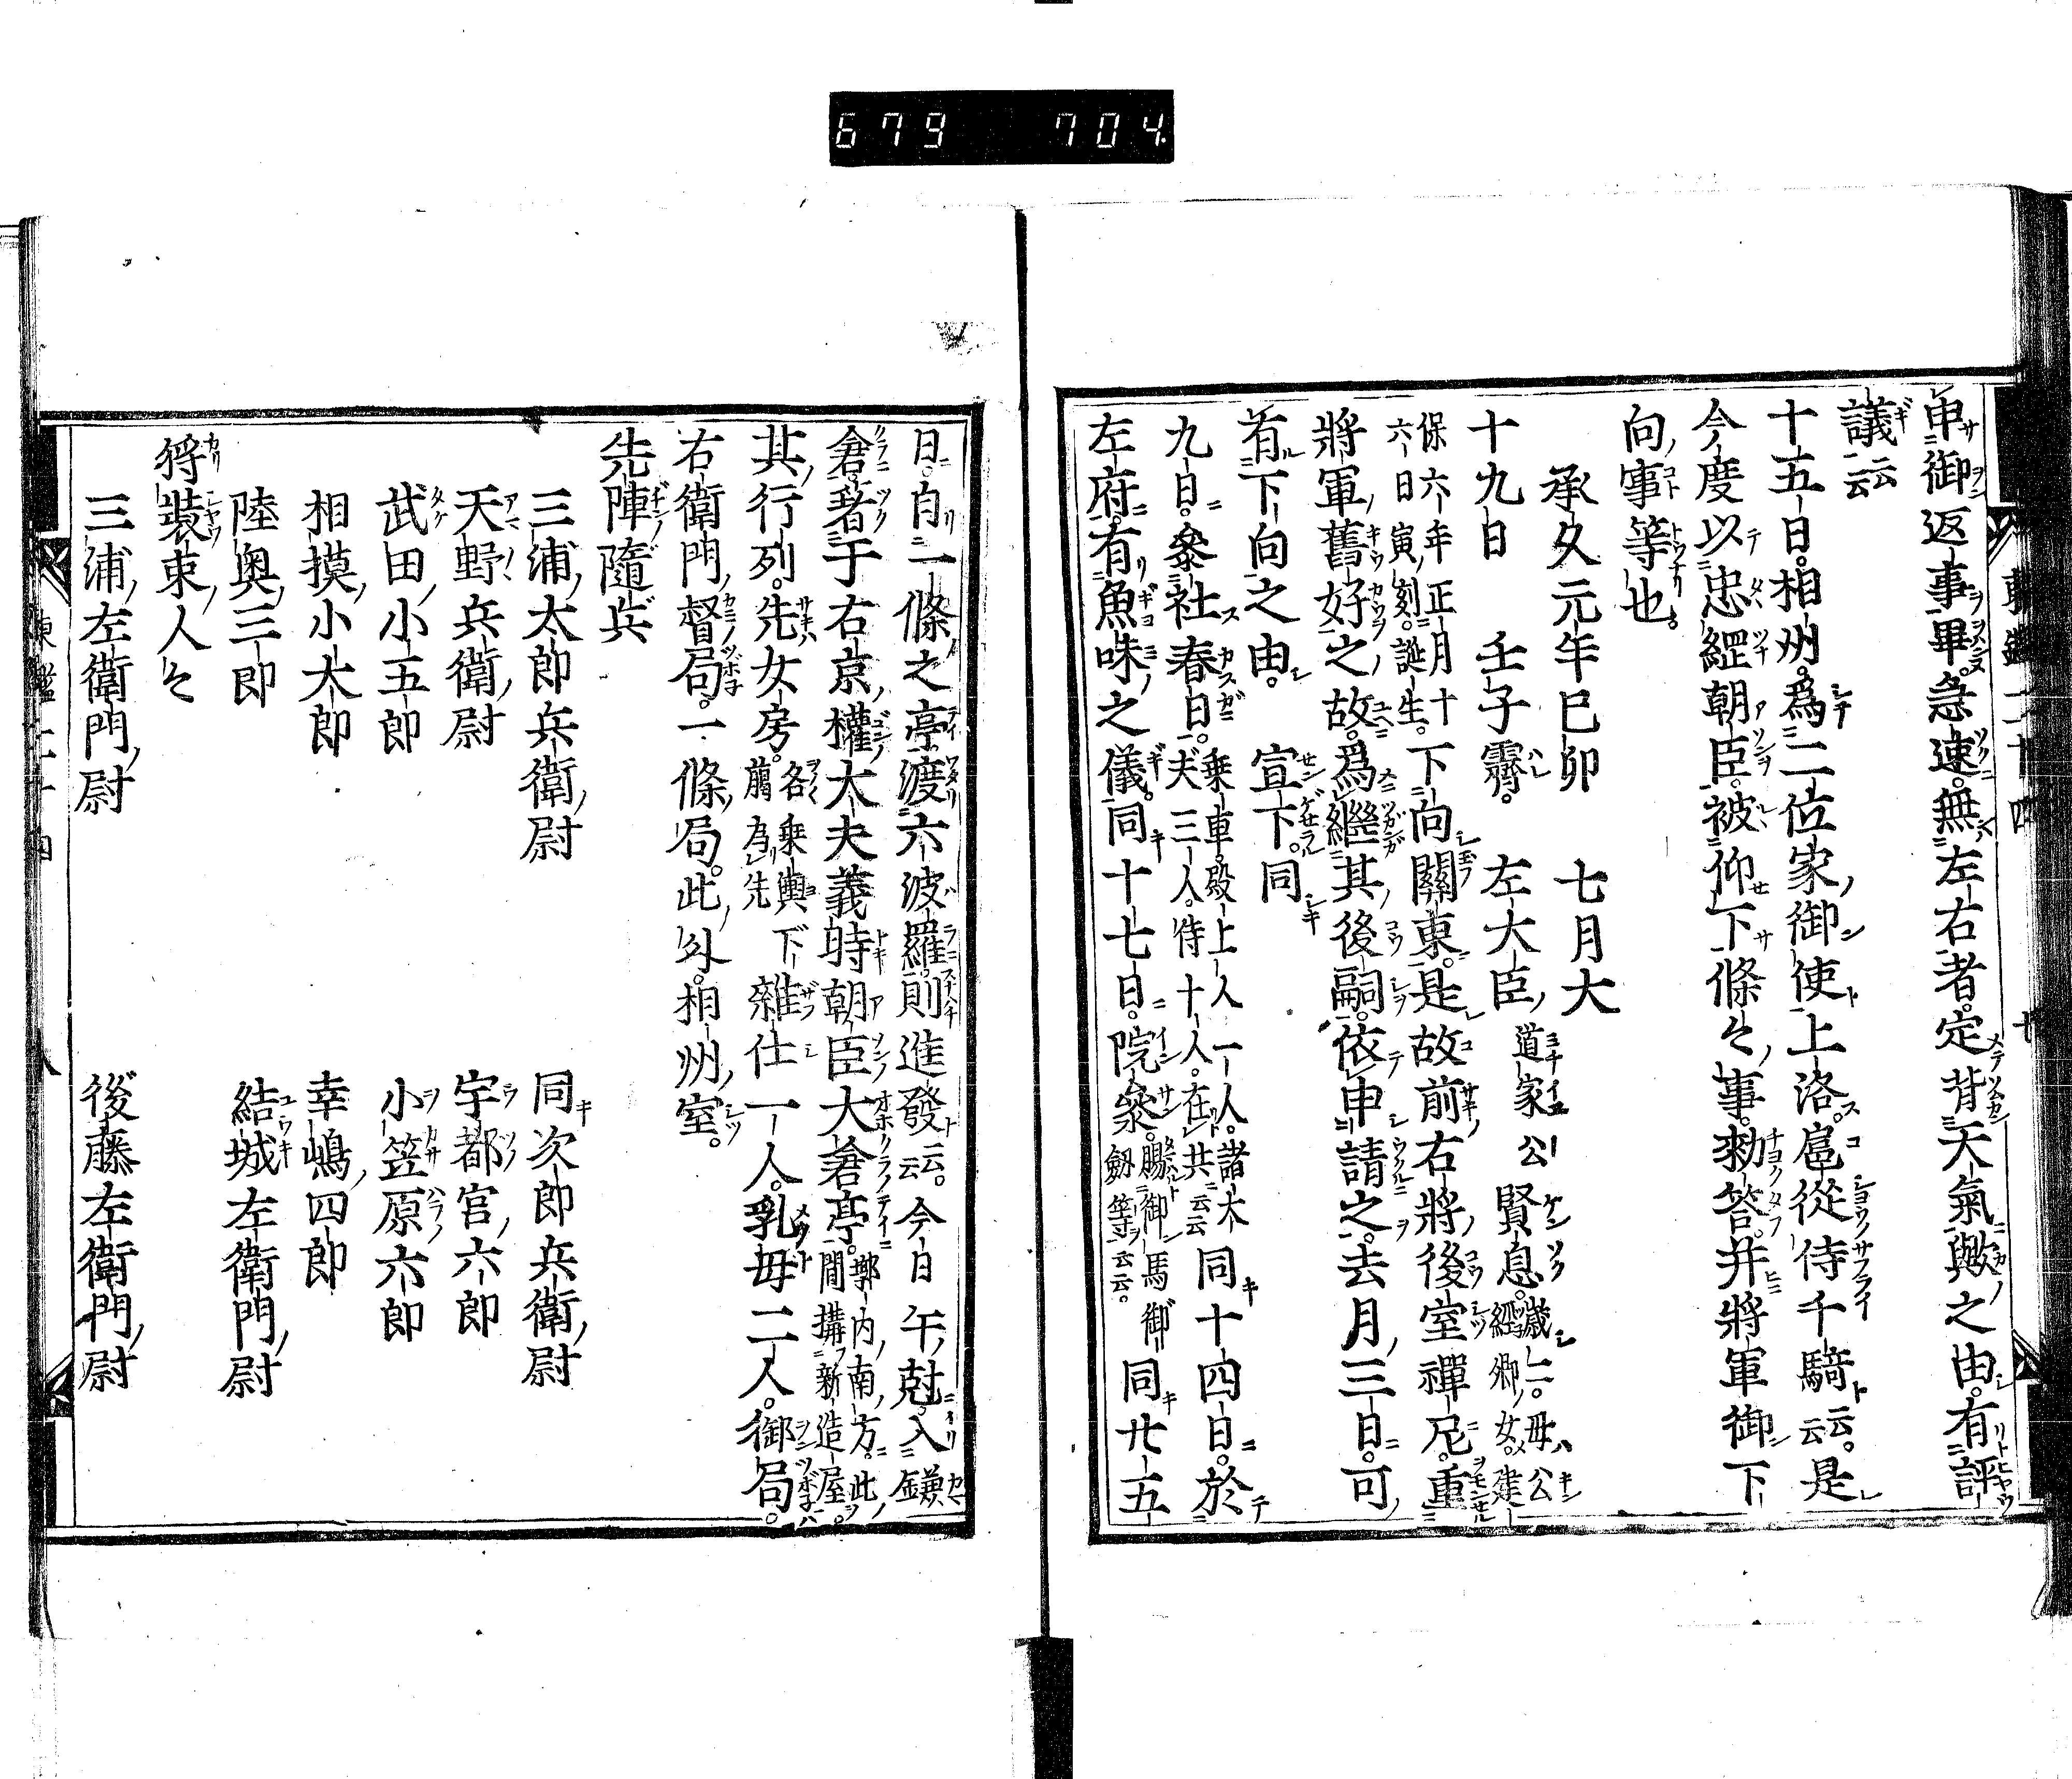 679 704
申御返事畢。急速。無左右者。定背天氣歟之由。有評
議云云
十五日。相州。爲二位家御使上洛。扈從侍千騎云云。是
今度以忠綱朝臣。被仰下條々事。勅答。并將軍御下
向事等也。
承久元年巳卯 七月大
十九日 壬子霽。 左大臣道家公賢息。歳二。母公經卿女。建
保六年正月十六日寅刻。誕生。下向關東。是故前右將後室禪尼。重
將軍舊好之故。爲繼其後嗣。依申請之。去月三日。可
有下向之由。 宣下。同
九日。參社春日。乗車。殿上人一人。諸大夫三人。侍十人。在共云云同十四日。於
左府。有魚味之儀。同十七日。院參。賜御馬御劔等云云。同廿五
日。自一條之亭。渡六波羅。則進發云云。今日午尅。入鎌
倉。著于右京權大夫義時朝臣大倉亭。郭内南方。此間搆新造屋。
其行列。先女房。各乗輿下﨟為先雜仕一人。乳母二人。御局。
右衛門督局。一條局。此外。相州室。
先陣隨兵
三浦太郎兵衛尉 同次郎兵衛尉
天野兵衛尉 宇都宮六郎
武田小五郎 小笠原六郎
相摸小太郎 幸嶋四郎
陸奥三郎 結城左衛門尉
狩裝束人々
三浦左衛門尉 後藤左衛門尉
東鑑二十四
八